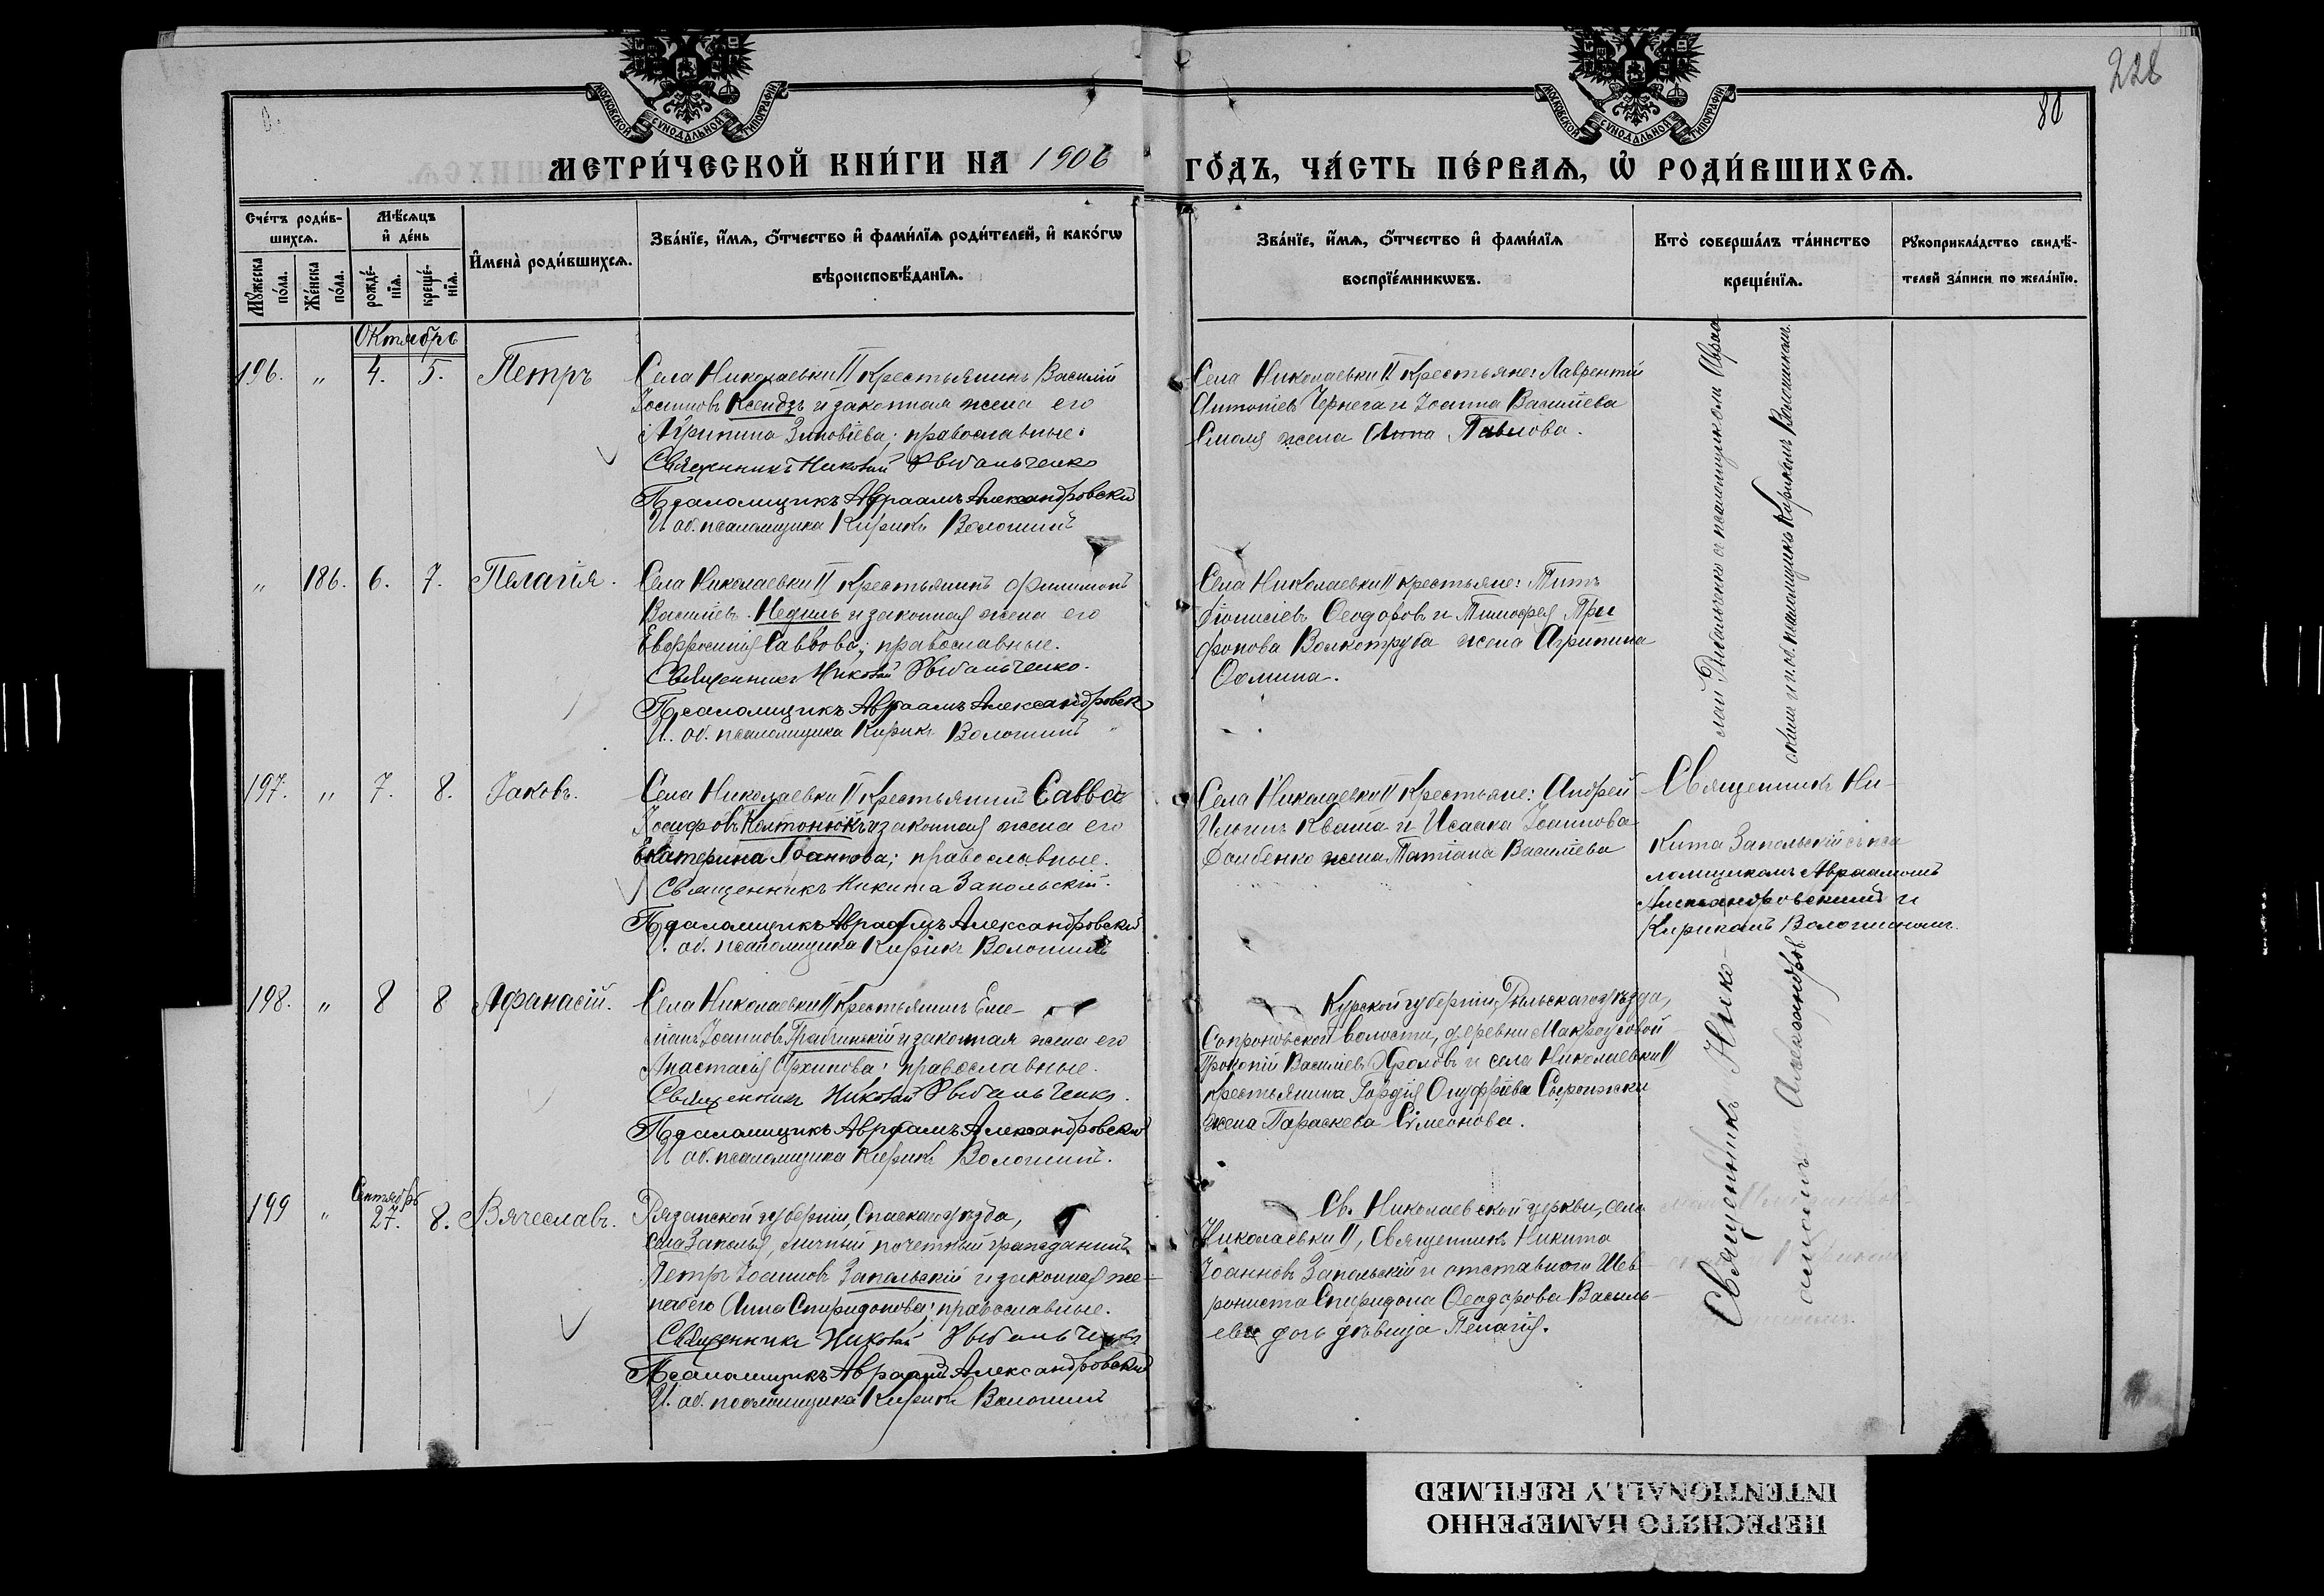 228
80
МОСКОВСКОЙ СѴНОДАЛЬНОЙ ТИПОГРАФІИ
МОСКОВСКОЙ СѴНОДАЛЬНОЙ ТИПОГРАФІИ
МЕТРИ́ЧЕСКОЙ КНИ́ГИ НА 1906 ГО́ДЪ, ЧА́СТЬ ПЕ́РВАѦ, Ѡ҆ РОДИ́ВШИХСѦ.
Сче́тъ роди́в-
шихсѧ.
Мꙋ́жеска
по́ла.
Же́нска
по́ла.
Мѣ́сѧцъ
и҆ де́нь
рожде́-
нїѧ.
креще́-
нїѧ.
И҆мена̀ роди́вшихсѧ.
Зва́нїе, и҆́мѧ, ѻ҆́тчество и҆ фами́лїѧ роди́телей, и҆ како́гѡ
вѣроисповѣ́данїѧ.
Зва́нїе, и҆́мѧ, ѻ҆́тчество и҆ фами́лїѧ
воспрїе́мникѡвъ.
Кто̀ соверша́лъ та́инство
креще́нїѧ.
Рꙋкоприкла́дство свидѣ́-
телей за́писи по жела́нїю.
Октябрь
196. " 4. 5. Петръ
Села Николаевки II крестьянинъ Василій
Іоанновъ Ксендзъ и законная жена его
Агрипина Зиновіева; православные.
Священникъ Николай Рыбальченко
Псаломщикъ Авраамъ Александровскій
И. об. псаломщика Кирикъ Волошинъ
Села Николаевки II крестьяне: Лаврентій
Антоніевъ Чернега и Іоанна Василіева
жена Анна Павлова.
" 186. 6. 7. Пелагія.
Села Николаевки II крестьянинъ Филимонъ
Василіевъ Недиль и законная жена его
Евфросинія Саввова; православные.
Священникъ Николай Рыбальченко.
Псаломщикъ Авраамъ Александровск
И. об. псаломщика Кирикъ Волошинъ
Села Николаевки II крестьяне: Титъ
Діонисіевъ Ѳеодоровъ и Тимофея Три
фонова Волкотруба жена Агрипина
Ѳомина.
197. " 7. 8. Іаковъ.
Села Николаевки II крестьянинъ Савва
Іосифовъ Колтонюкъ и законная жена его
Екатерина Іоаннова; православные.
Священникъ Никита Запольскій.
Псаломщикъ Авраамъ Александровскій
И. об. псаломщика Кирикъ Волошинъ
Села Николаевки II крестьяне: Андрей
Ильинъ Кваша и Исаака Іоаннова
жена Татіана Василіева
Священникъ Ни-
кита Запольскій съ пса
ломщикомъ Авраамомъ
Александровскимъ и
Кирикомъ Волошиномъ.
198. " 8 8 Афанасій.
Села Николаевки II крестьянинъ Еме-
ліанъ Іоанновъ Грабчинскій и законная жена его
Анастасія Архипова; православные.
Священникъ Николай Рыбальченко.
Псаломщикъ Авраамъ Александровскій
И. об. псаломщика Кирикъ Волошинъ.
Курской губерніи, Рыльскаго уѣзда,
волости, деревни
Прокопій Василіевъ Фроловъ и села Николаевки II
крестьянина Гордія Онуфріева
жена Параскева Сѵмеонова.
199 " Сентябрь 27. 8. Вячеславъ.
Рязанской губерніи, Спаскаго уѣзда,
села Заполья, личный почетный гражданинъ
Петръ Іоанновъ Запольскій и законная же-
на его Анна Спиридонова; православные.
Священникъ Николай Рыбальченко
Псаломщикъ Авраамъ Александровскій
И. об. псаломщика Кирикъ Волошинъ
Св. Николаевской церкви, села
Николаевки II, Священникъ Никита
Іоанновъ Запольскій и отставного
Спиридона Ѳеодорова Василь-
ева дочь дѣвица Пелагія.
Священникъ Нико-
лай Рыбальченко съ псаломщикомъ Авра
амомъ Александров
скимъ и и. об. псаломщика Кирикомъ Волошиномъ.
ПЕРЕСНЯТО НАМЕРЕННО
INTENTIONALLY REFILMED